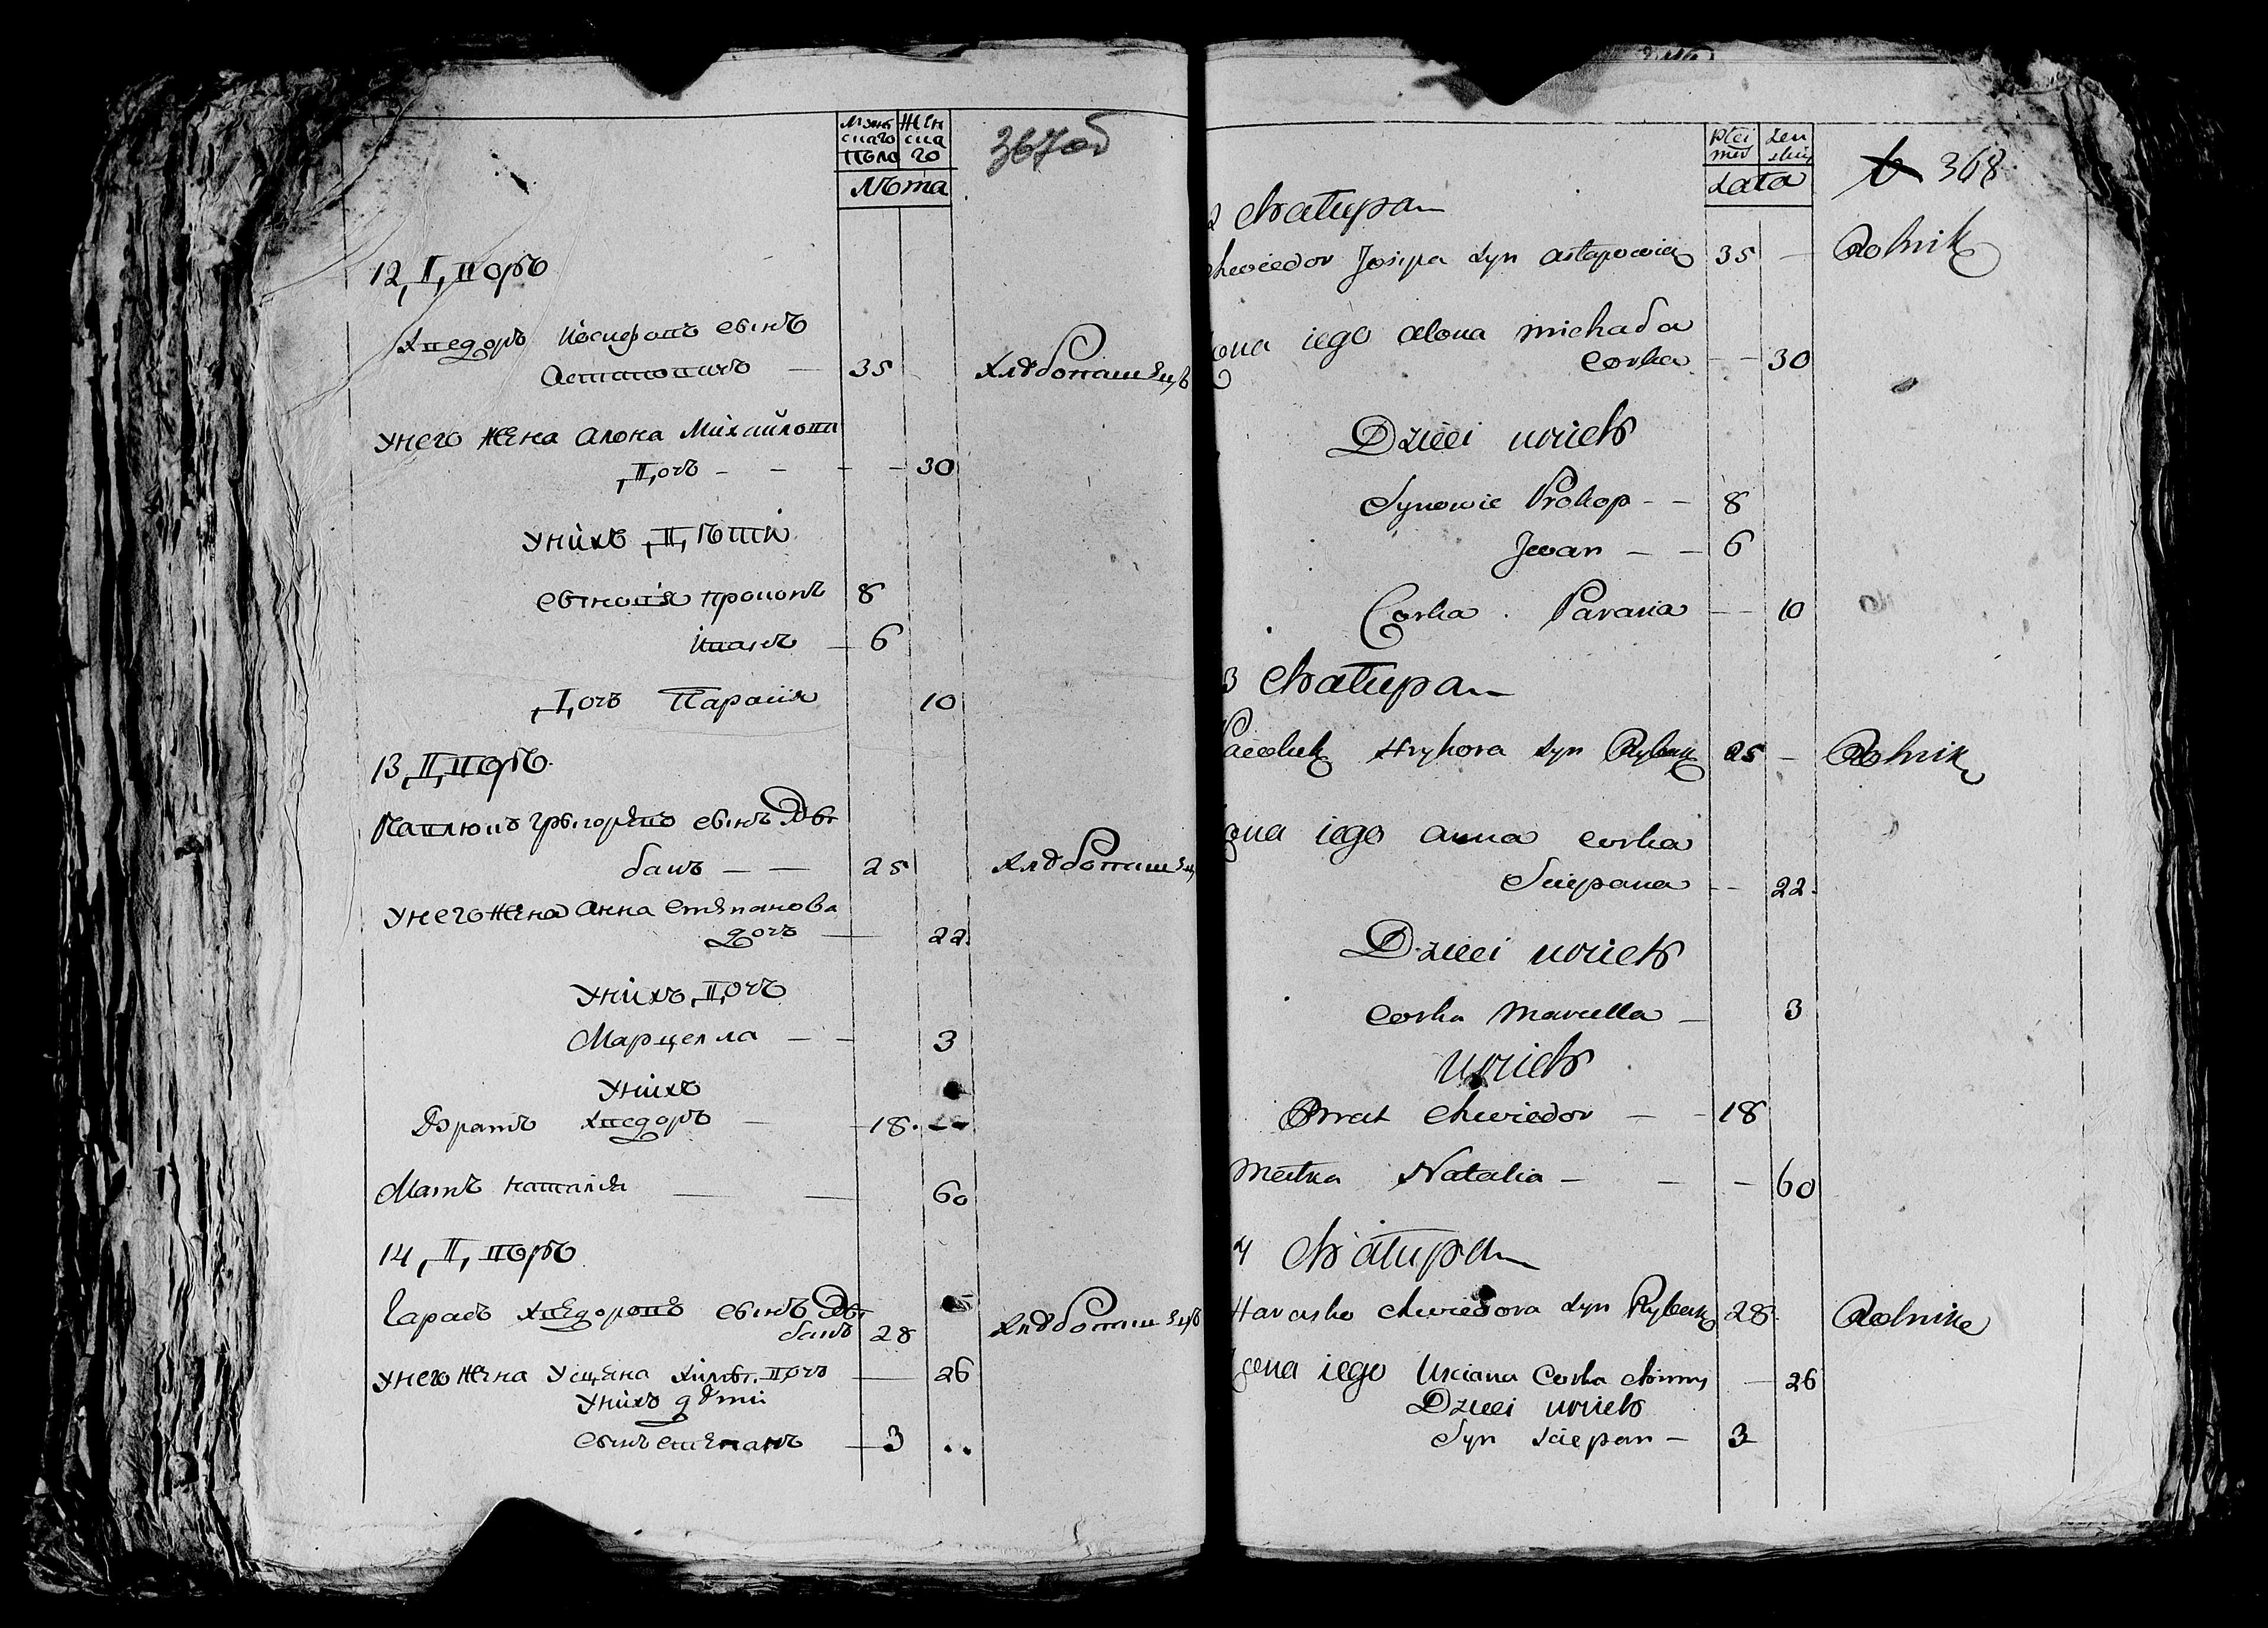 Мужс Жен
скаго ска
Пола го
Лѣта
367 об
12, Дворъ
Хведоръ Иосифовъ сынъ
Астаповичъ — 35
Хлѣбопашецъ
Унего Жена Алона Михайлова
Дочъ - - - - 30
Унихъ Дѣти
Сыновя Прокопъ 8
Иванъ — 6
Дочъ Парасия 10
13, Дворъ
Павлюкъ Грыгоревъ сынъ Ры
бакъ — — 25
Хлѣбопашец
Унего Жена Анна Степанова
дочъ — 22.
Унихъ Дочъ
Марцелла — - 3
Унихъ
Братъ Хведоръ — 18.
Матъ Наталия — — 60
14, Дворъ
Гарасъ Хведоровъ сынъ Ры
бакъ 28
Хлѣбопашецъ
Унего Жена Усцена Химы Дочъ — 26
Унихъ дѣти
Сынъ Степанъ — 3
Płci Zen
męs skiey
Lata
368
2 Chałupa
Chwiedor Josipa Syn Astapowicz 35 — Rolnik
ona iego Alona Michała
Corka - - 30
Dzieci u nich
Synowie Prokop - - 8
Jwan — — 6
Corka . Parasia - - 10
3 Chałupa
Pawluk Hryhora Syn Rybak 25 — Rolnik
ona iego Anna Corka
Sciepana - - 22.
Dzieci u nich
Corka Marcella — 3
u nich
Brat Chwiedor — - 18
Matka Natalia — — — 60
4 Chałupa
Harasko Chwiedora Syn Rybak 28. Rolnik
żona iego Usciana Corka Chimy — 26
Dzieci u nich
Syn Sciepan — 3